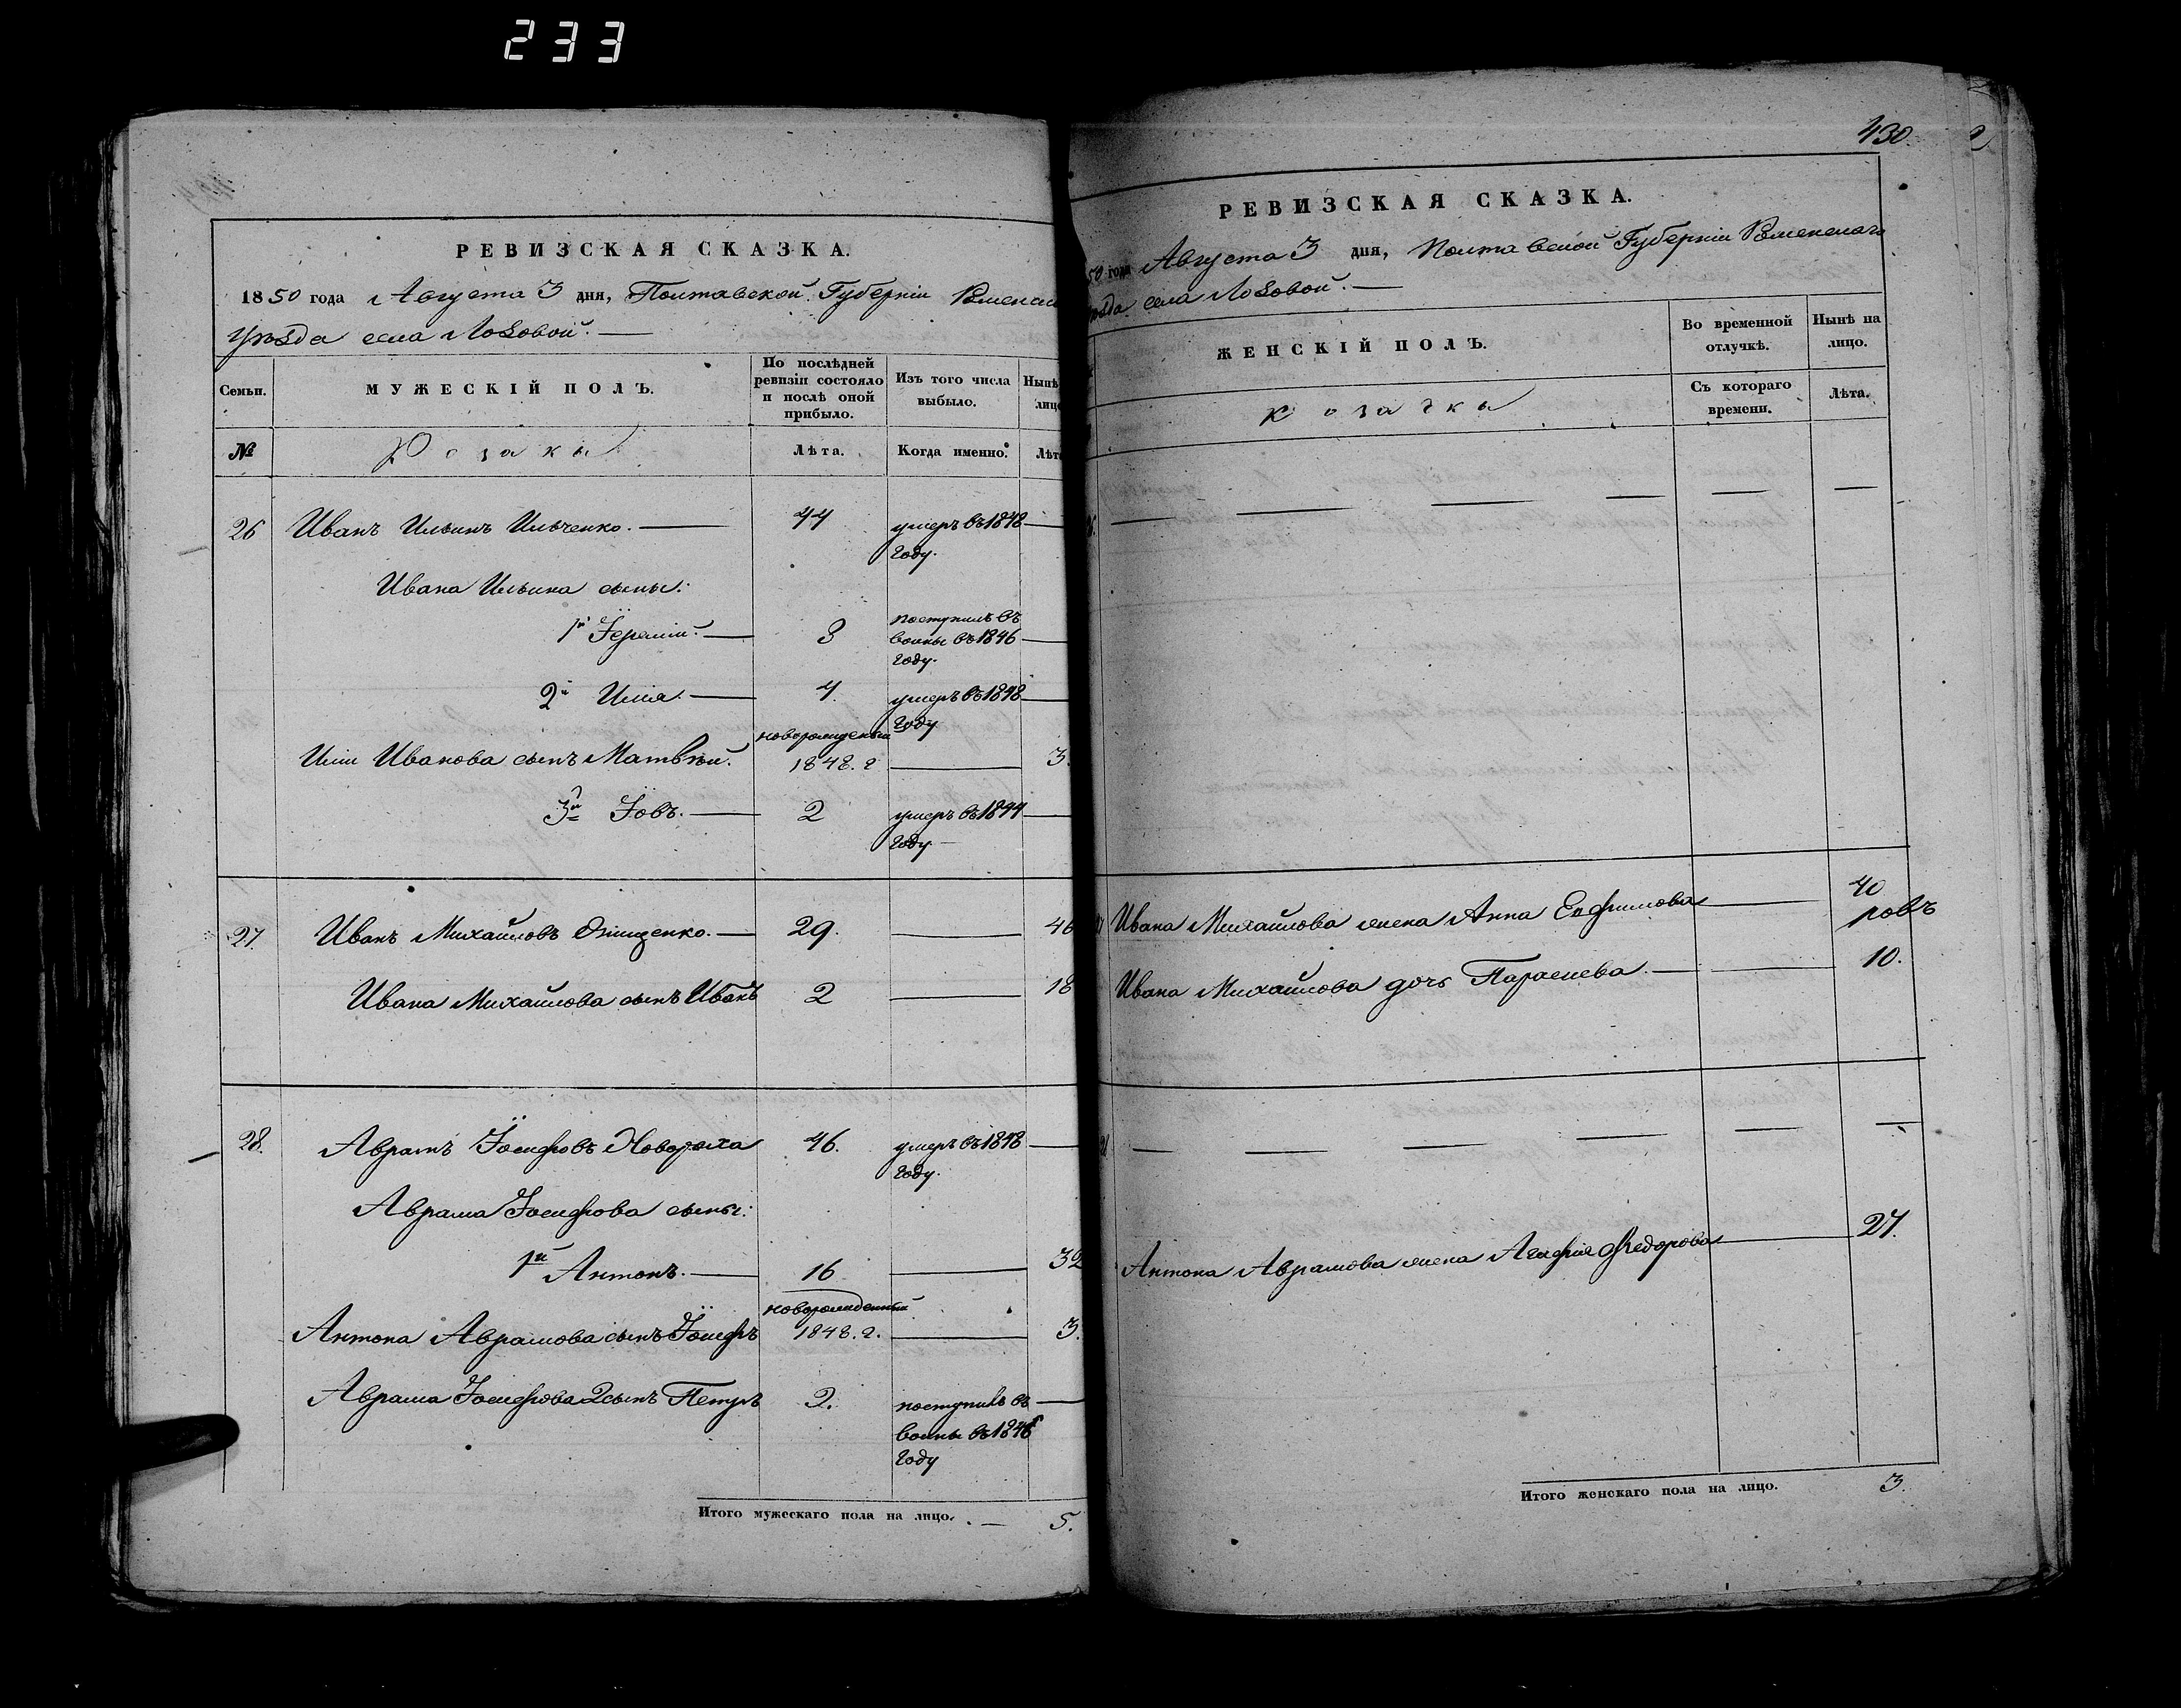 233
РЕВИЗСКАЯ СКАЗКА.
1850 года Августа 3 дня, Полтавской Губерніи Роменска
Уѣзда села Лозовой.
Семьи.
МУЖЕСКІЙ ПОЛЪ.
По послѣдней ревизіи состояло и послѣ оной прибыло.
Изъ того числа выбыло.
Нынѣ
лицо
№
Козаки
Лѣта.
Когда именно.
Лѣта
26 Иванъ Ильинъ Ильченко. — 44 умеръ въ 1848 году. —
Ивана Ильина сыны:
1й Іеремій. — 8 поступилъ въ воины въ 1846 году. —
2й Илія. — 4. умеръ въ 1848 году —
Иліи Иванова сынъ Матвѣй. новорожденный 1848. г — 3.
3й Іовъ. — 2 умеръ въ 1844 году. —
27. Иванъ Михайловъ Онищенко. — 29. — 46
Ивана Михайлова сынъ Иванъ 2 — 18
28. Аврамъ Іосифовъ 46. умеръ въ 1848 году. —
Аврама Іосифова сыны:
1й Антонъ. — 16 — 32
Антона Аврамова сынъ Іосифъ новорожденный 1848. г. — 3.
Аврама Іосифова 2 сынъ Петръ 2. поступилъ въ воины въ году —
Итого мужескаго пола на лицо. — 5.
430.
РЕВИЗСКАЯ СКАЗКА.
50 года Августа 3 дня, Полтавской Губерніи Роменскаго
уѣзда села Лозовой. —
ЖЕНСКІЙ ПОЛЪ.
Во временной отлучкѣ.
Нынѣ на лицо.
Козачки
Съ котораго времени.
Лѣта.
Ивана Михайлова жена Анна Евфимова — 40
ровъ
Ивана Михайлова дочь Параскева. — 10.
Антона Аврамова жена Агафія Федорова — 27.
Итого женскаго пола на лицо. 3.